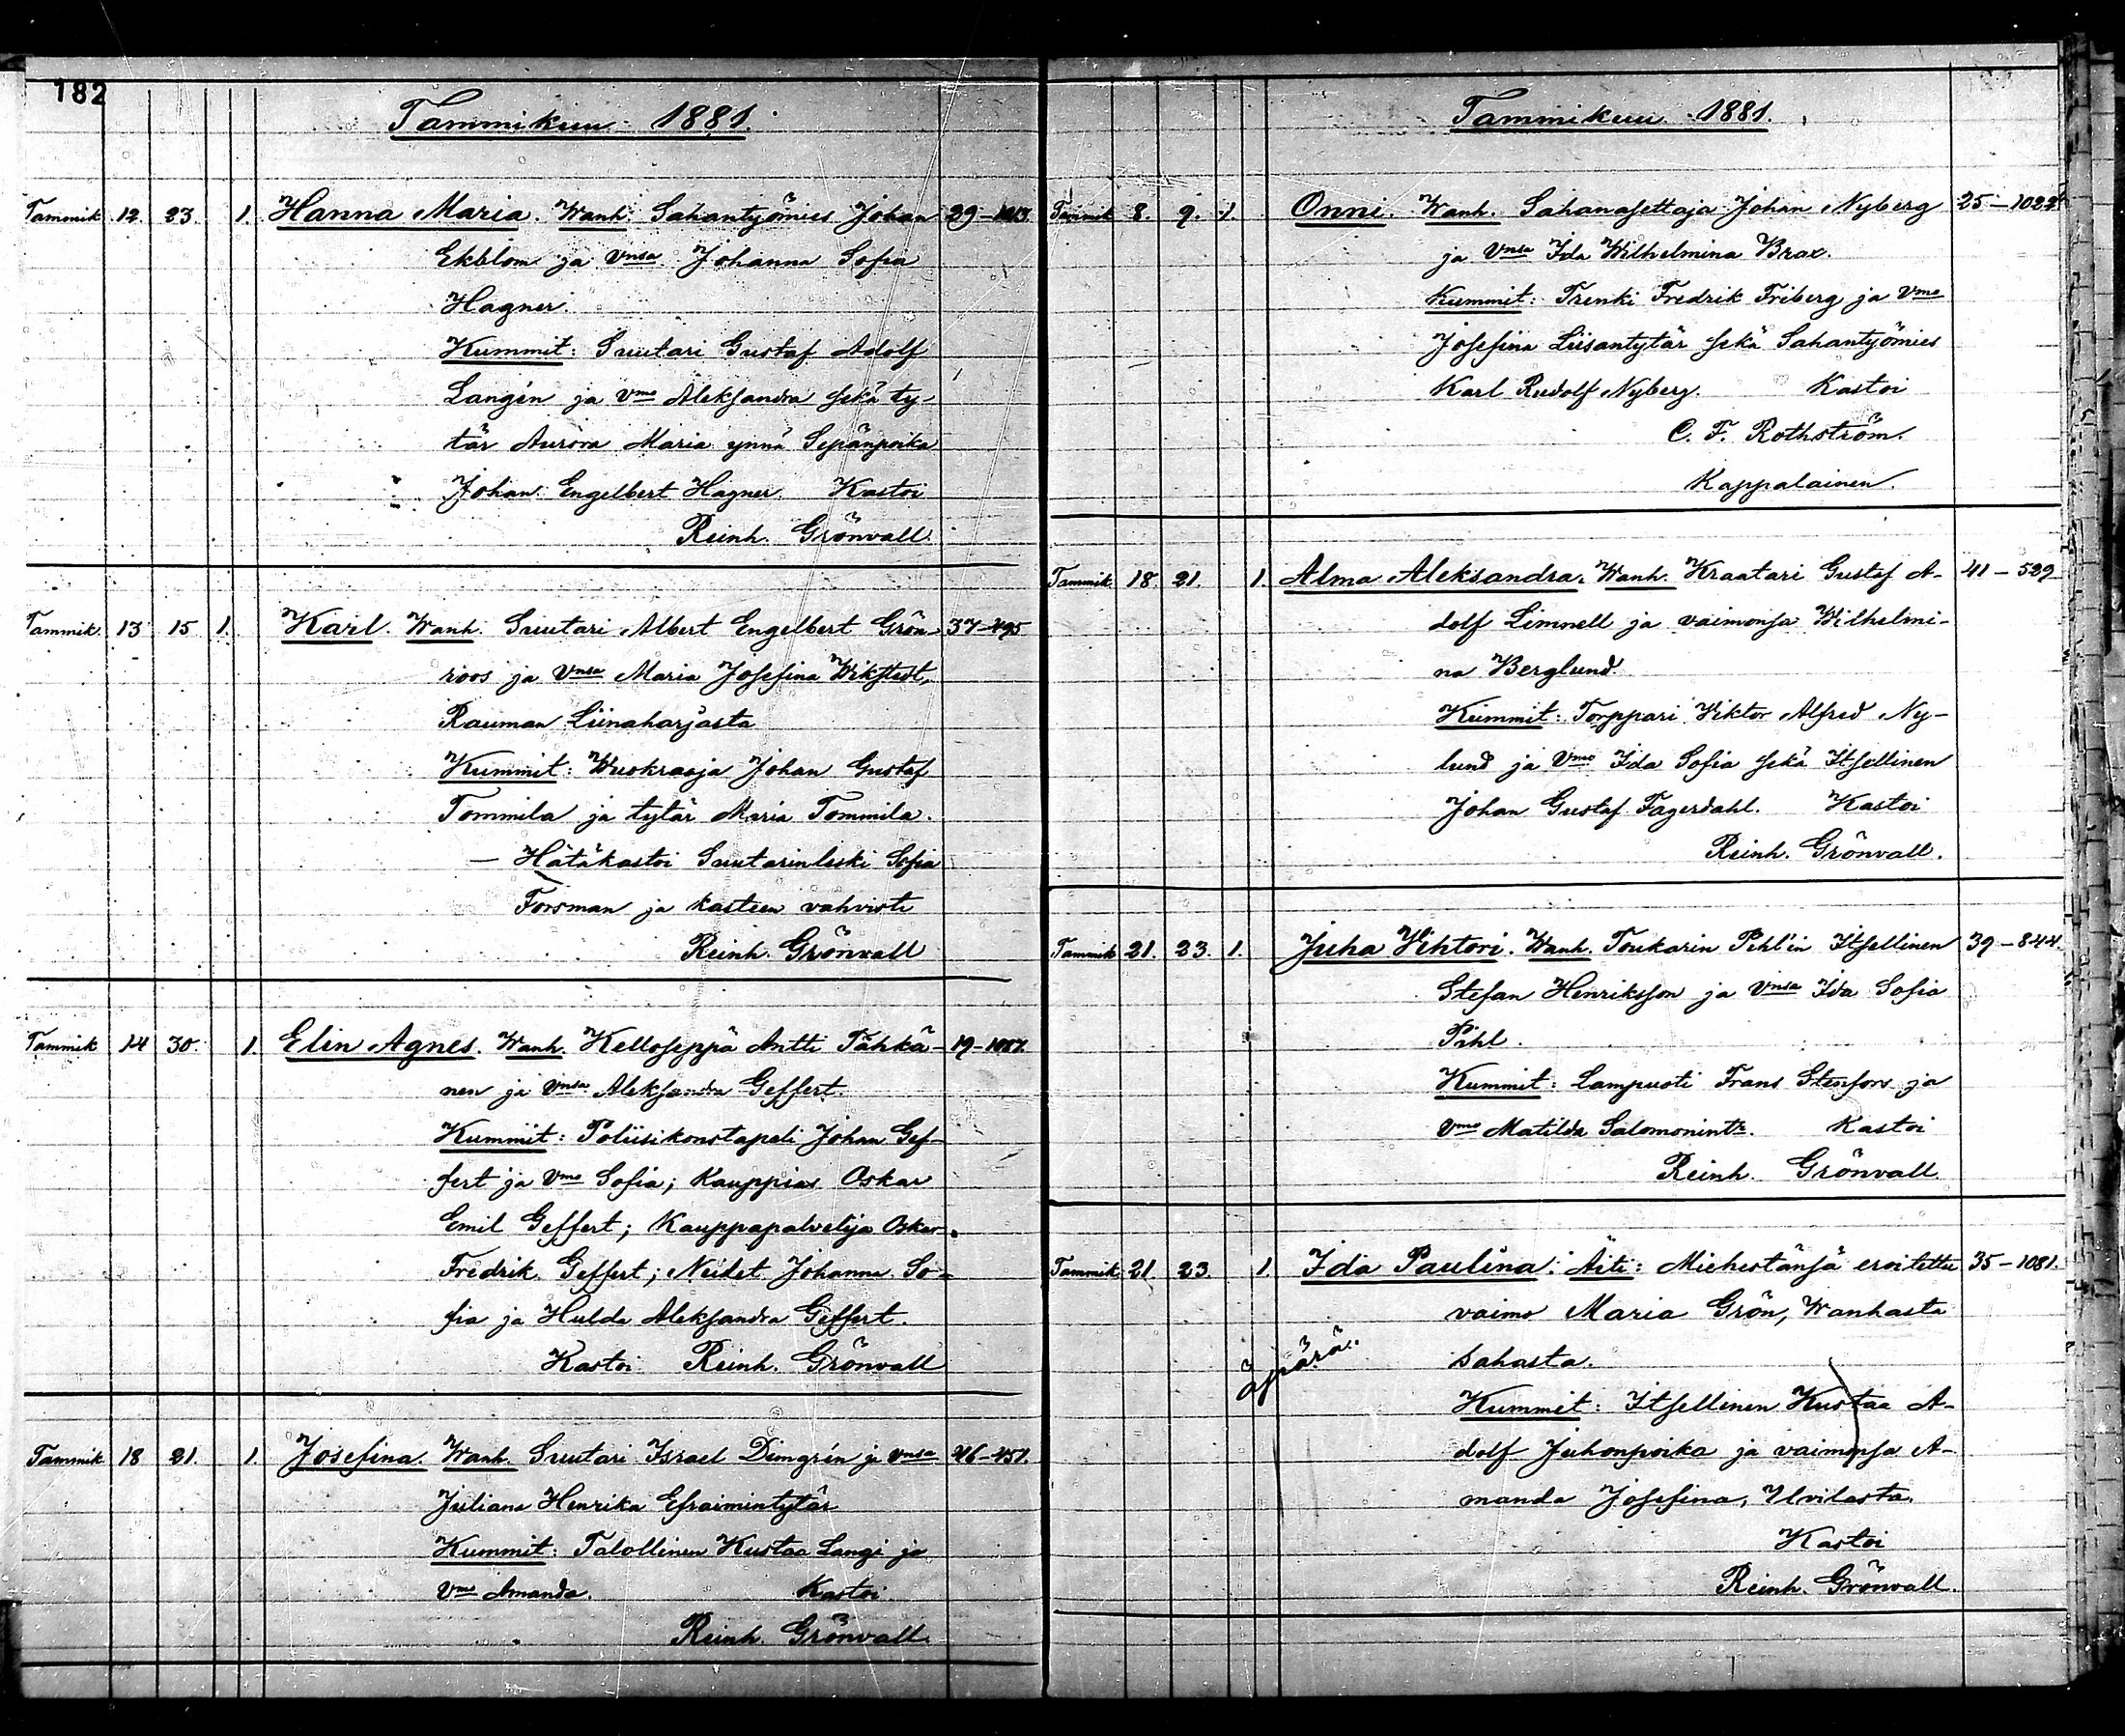 182
Tammikuu 1881.
Tammik 12. 23. 1. Hanna Maria. Wanh: Sahantyömies Johan 29-1013.
Ekblom ja Vnsa Johanna Sofia
Hagner.
Kummit: Suutari Gustaf Adolf
Langén ja Vmo Aleksandra sekä ty-
tär Aurora Maria ynnä Sepänpoika
Johan Engelbert Hagner. Kastoi
Reinh. Grönvall.
Tammik. 13 15 1. Karl. Wanh. Suutari Albert Engelbert Grön- 37-495
roos ja Vnsa Maria Josefina Wikstedt,
Rauman Liinaharjasta
Kummit: Wuokraaja Johan Gustaf
Tommila ja tytär Maria Tommila.
- Hätäkastoi Suutarinleski Sofia
Forsman ja kasteen vahvisti
Reinh. Grönvall
Tammik 14 30. 1. Elin Agnes. Wanh. Kelloseppä Antti Tähkä- 19-1087.
nen ja Vnsa Aleksandra Geffert.
Kummit: Poliisikonstapeli Johan Gef-
fert ja Vmo Sofia; Kauppias Oskar
Emil Geffert; Kauppapalvelija Oskar
Fredrik Geffert; Neidet Johanna So-
fia ja Hulda Aleksandra Geffert.
Kastoi Reinh. Grönvall
Tammik 18 21. 1. Josefina. Wanh. Suutari Israel Dimgrén ja Vnsa 46-451.
Juliana Henrika Efraimintytär
Kummit: Talollinen Kustaa Langi ja
Vmo Amanda. Kastoi.
Reinh. Grönvall.
Tammikuu 1881.
Tammik 8. 9. 1. Onni. Wanh. Sahanasettaja Johan Nyberg 25-1022
ja Vnsa Ida Wilhelmina Brax.
Kummit: Trenki Fredrik Friberg ja Vmo
Josefina Liisantytär sekä Sahantyömies
Karl Rudolf Nyberg. Kastoi
C. F. Rothström.
Kappalainen.
Tammik 18. 21. 1. Alma Aleksandra. Wanh. Kraatari Gustaf A- 41-529
dolf Limnell ja vaimonsa Wilhelmi-
na Berglund.
Kummit: Torppari Viktor Alfred Ny-
lund ja Vmo Ida Sofia sekä Itsellinen
Johan Gustaf Fagerdahl. Kastoi
Reinh. Grönvall.
Tammik 21. 23. 1. Juha Vihtori. Wanh. Toukarin Pihl'in Itsellinen 39-844.
Stefan Henriksson ja Vnsa Ida Sofia
Pihl.
Kummit: Lampuoti Frans Stenfors ja
Vmo Matilda Salomonintr. Kastoi
Reinh. Grönvall.
Tammik 21. 23. 1. Ida Paulina. Äiti: Miehestänsä eroitettu 35-1081.
vaimo Maria Grön, Wanhasta
äpärä. sahasta.
Kummit: Itsellinen Kustaa A-
dolf Juhonpoika ja vaimonsa A-
manda Josefina, Ulvilasta.
Kastoi
Reinh. Grönvall.